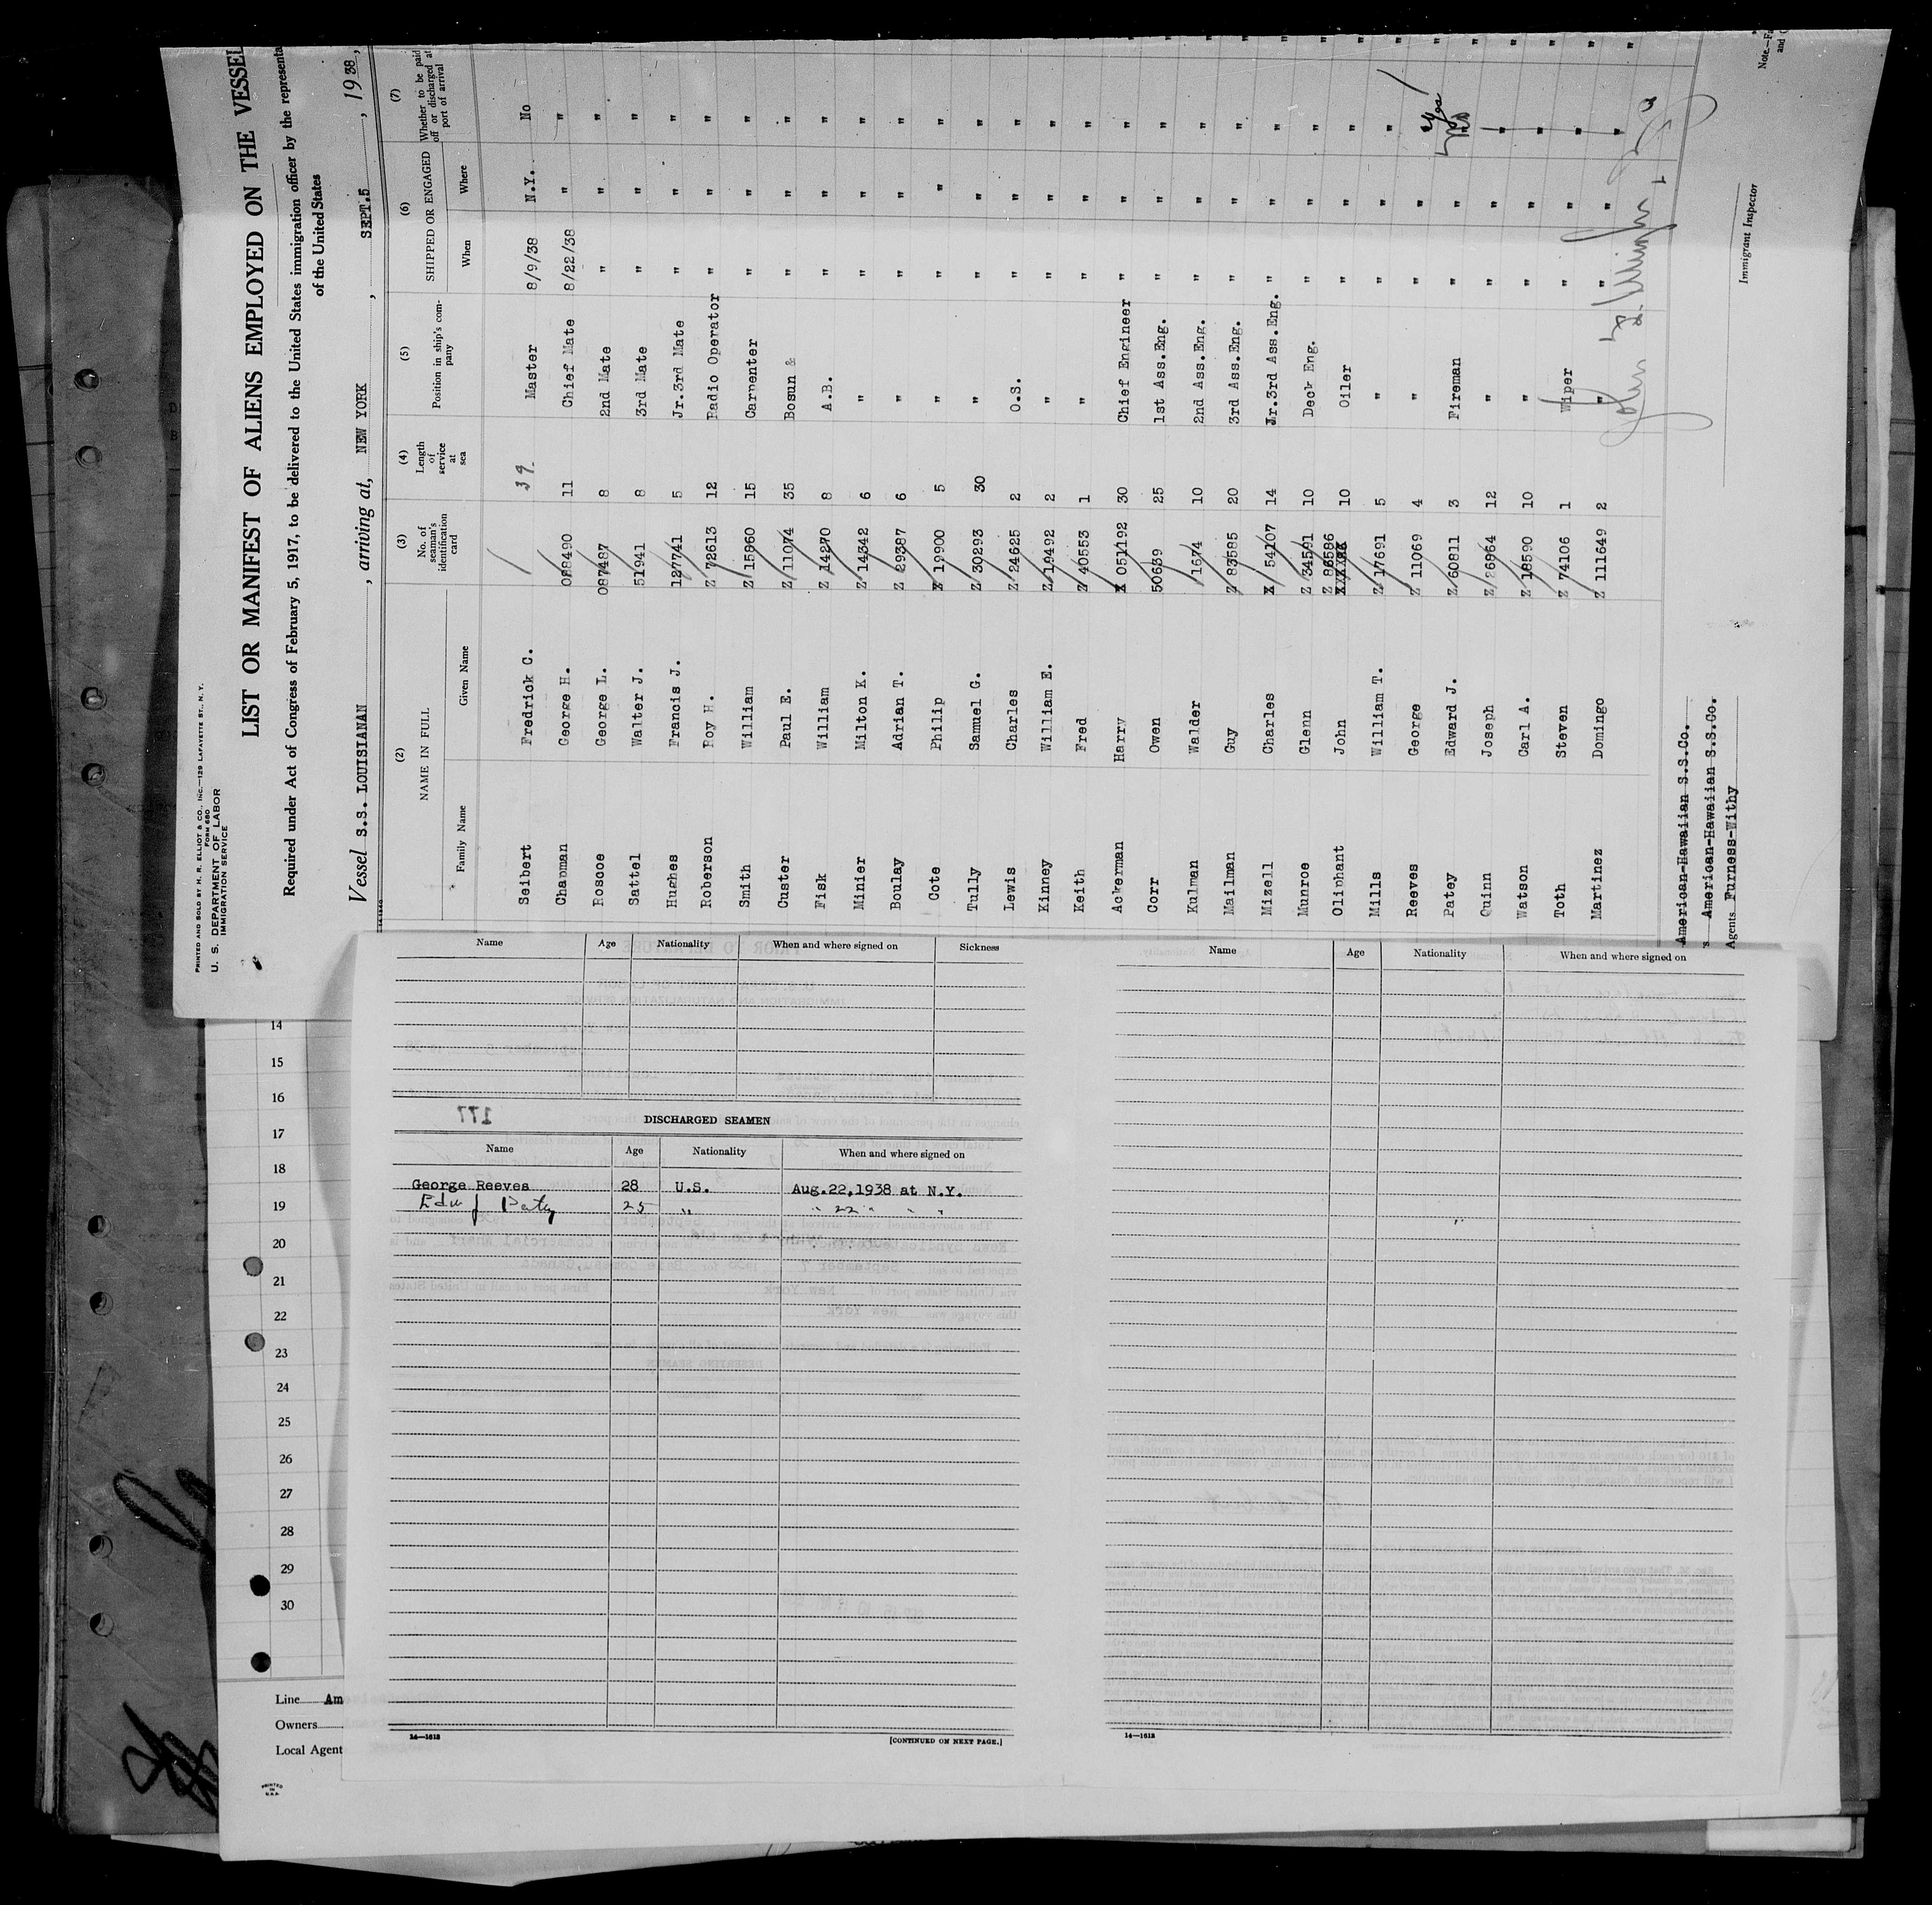 PRINTED AND SOLD BY H. R. ELLIOT & CO., INC.—129 LAFAYETTE ST., N. Y.
FORM 680
U. S. DEPARTMENT OF LABOR
IMMIGRATION SERVICE
LIST OR MANIFEST OF ALIENS EMPLOYED ON THE VESSEL
Required under Act of Congress of February 5, 1917, to be delivered to the United States immigration officer by the representa
of the United States
Vessel S.S. LOUISIANAN , arriving at, NEW YORK , SEPT.5 , 19 38 ,
(2) (3) (4) (5) (6) (7)
NAME IN FULL No. of seaman's identification card Length of service at sea Position in ship's company SHIPPED OR ENGAGED Whether to be paid off or discharged at port of arrival
Family Name Given Name When Where
Seibert Fredrick C. 39 Master 8/9/38 N.Y. No
Chapman George H. 088490 11 Chief Mate 8/22/38 " "
Roscoe George L. 087487 8 2nd Mate " " "
Sattel Walter J. 51941 8 3rd Mate " " "
Hughes Francis J. 127741 5 Jr.3rd Mate " " "
Roberson Roy H. Z 72613 12 Radio Operator " " "
Smith William Z 15860 15 Carpenter " " "
Custer Paul E. Z 11074 35 Bosun & " " "
Fisk William Z 14270 8 A.B. " " "
Minier Milton K. Z 14342 6 " " " "
Boulay Adrian T. Z 29387 6 " " " "
Cote Philip Z 19900 5 " " " "
Tully Samuel G. Z 30293 30 " " " "
Lewis Charles Z 24625 2 O.S. " " "
Kinney William E. Z 19492 2 " " " "
Keith Fred Z 40553 1 " " " "
Ackerman Harry X 051192 30 Chief Engineer " " "
Corr Owen 50639 25 1st Ass.Eng. " " "
Kulman Walder 1674 10 2nd Ass.Eng. " " "
Mailman Guy Z 83585 20 3rd Ass.Eng. " " "
Mizell Charles X 54107 14 Jr.3rd Ass.Eng. " " "
Munroe Glenn Z 34591 10 Deck Eng. " " "
Oliphant John Z 86586 10 Oiler " " "
Mills William T. Z 17691 5 " " " "
Reeves George Z 11069 4 " " " yes
Patey Edward J. Z 60811 3 Fireman " " yes
Quinn Joseph Z 26964 12 " " " "
Watson Carl A. Z 18590 10 " " " "
Toth Steven Z 74106 1 Wiper " " "
Martinez Domingo Z 111649 2 " " " "
American-Hawaiian S.S.Co.
American-Hawaiian S.S.Co.
Agents Furness-Withy
Immigrant Inspector
Name Age Nationality When and where signed on Sickness
177
DISCHARGED SEAMEN
Name Age Nationality When and where signed on
George Reeves 28 U.S. Aug.22,1938 at N.Y.
Edw J Patey 25 " " 22 " " "
14—1613
[CONTINUED ON NEXT PAGE.]
Name Age Nationality When and where signed on
14—1613
14
15
16
17
18
19
20
21
22
23
24
25
26
27
28
29
30
Line Am
Owners
Local Agent
PRINTED IN U.S.A.